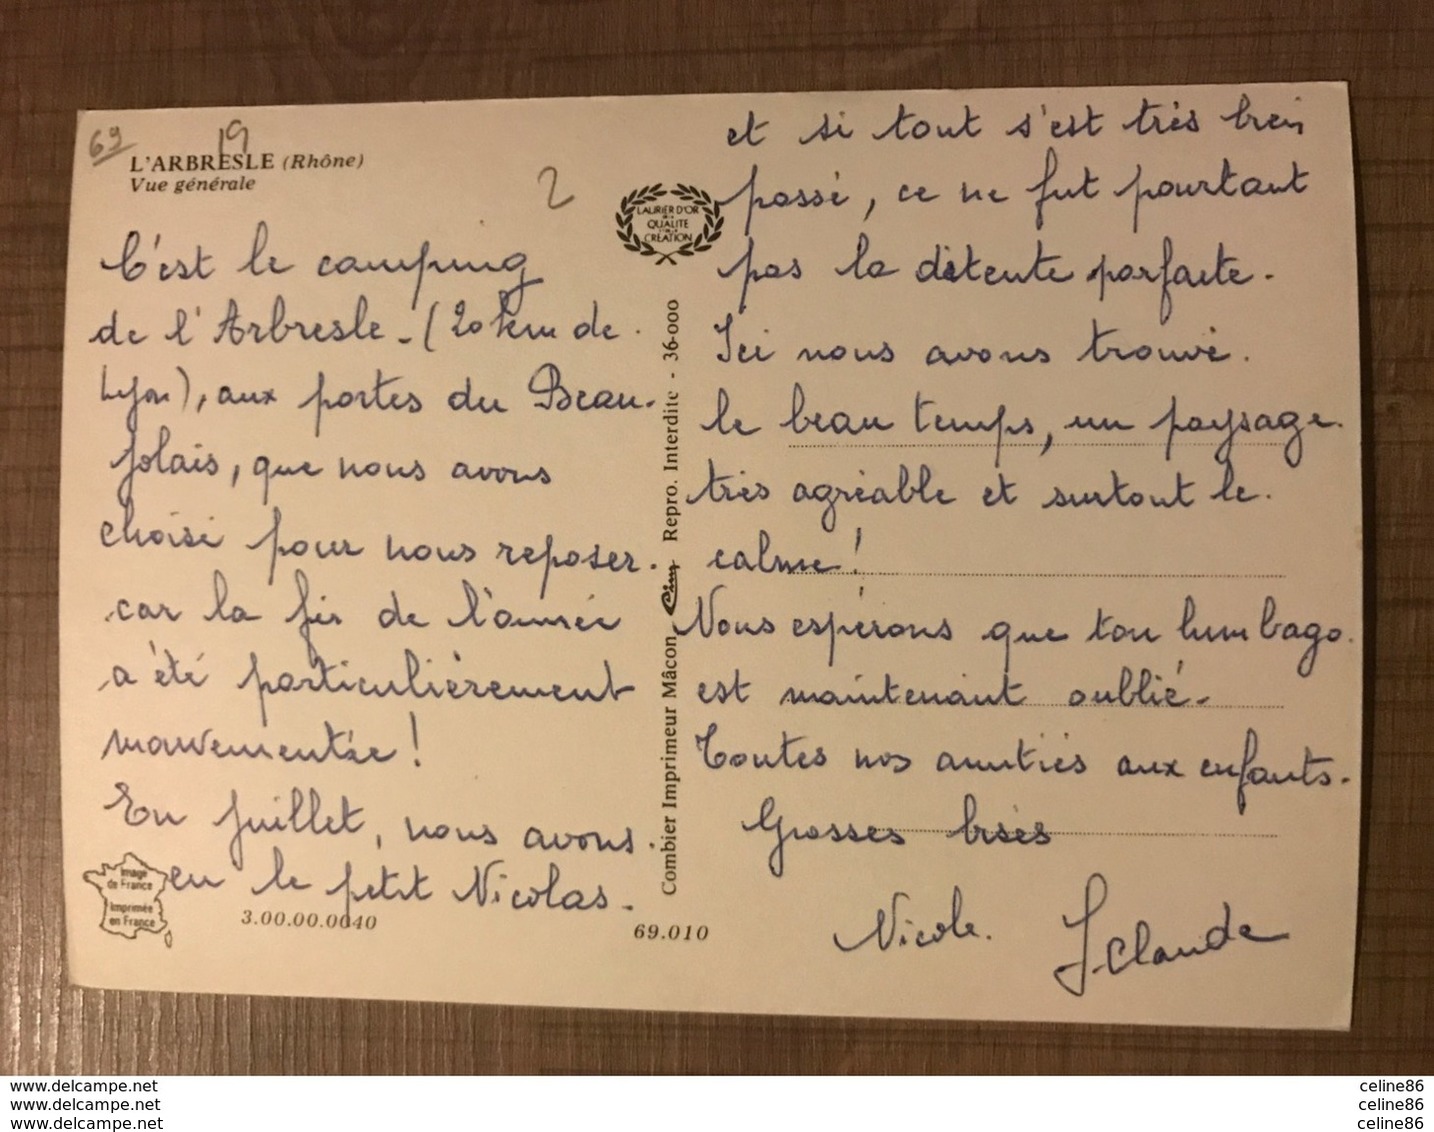 69
19
L'ARBRESLE (Rhône)
Vue générale
2
LAURIER D'OR
DE LA
QUALITÉ
CRÉATION
C'est le camping
de l'Arbresle - (20 km de
Lyon), aux portes du Beau-
jolais, que nous avons
choisi pour nous reposer
car la fin de l'année
a été particulièrement
mouvementée !
En juillet, nous avons
eu le petit Nicolas.
et si tout s'est très bien
passé, ce ne fut pourtant
pas la détente parfaite.
Ici nous avons trouvé
le beau temps, un paysage
très agréable et surtout le
calme !
Nous espérons que ton lumbago
est maintenant oublié.
Toutes nos amitiés aux enfants.
Grosses bises
Nicole. J. Claude
Combier Imprimeur Mâcon Cim Repro. Interdite - 36-000
Image
de France
Imprimée
en France
3.00.00.0040
69.010
www.delcampe.net celine86
www.delcampe.net celine86
www.delcampe.net celine86